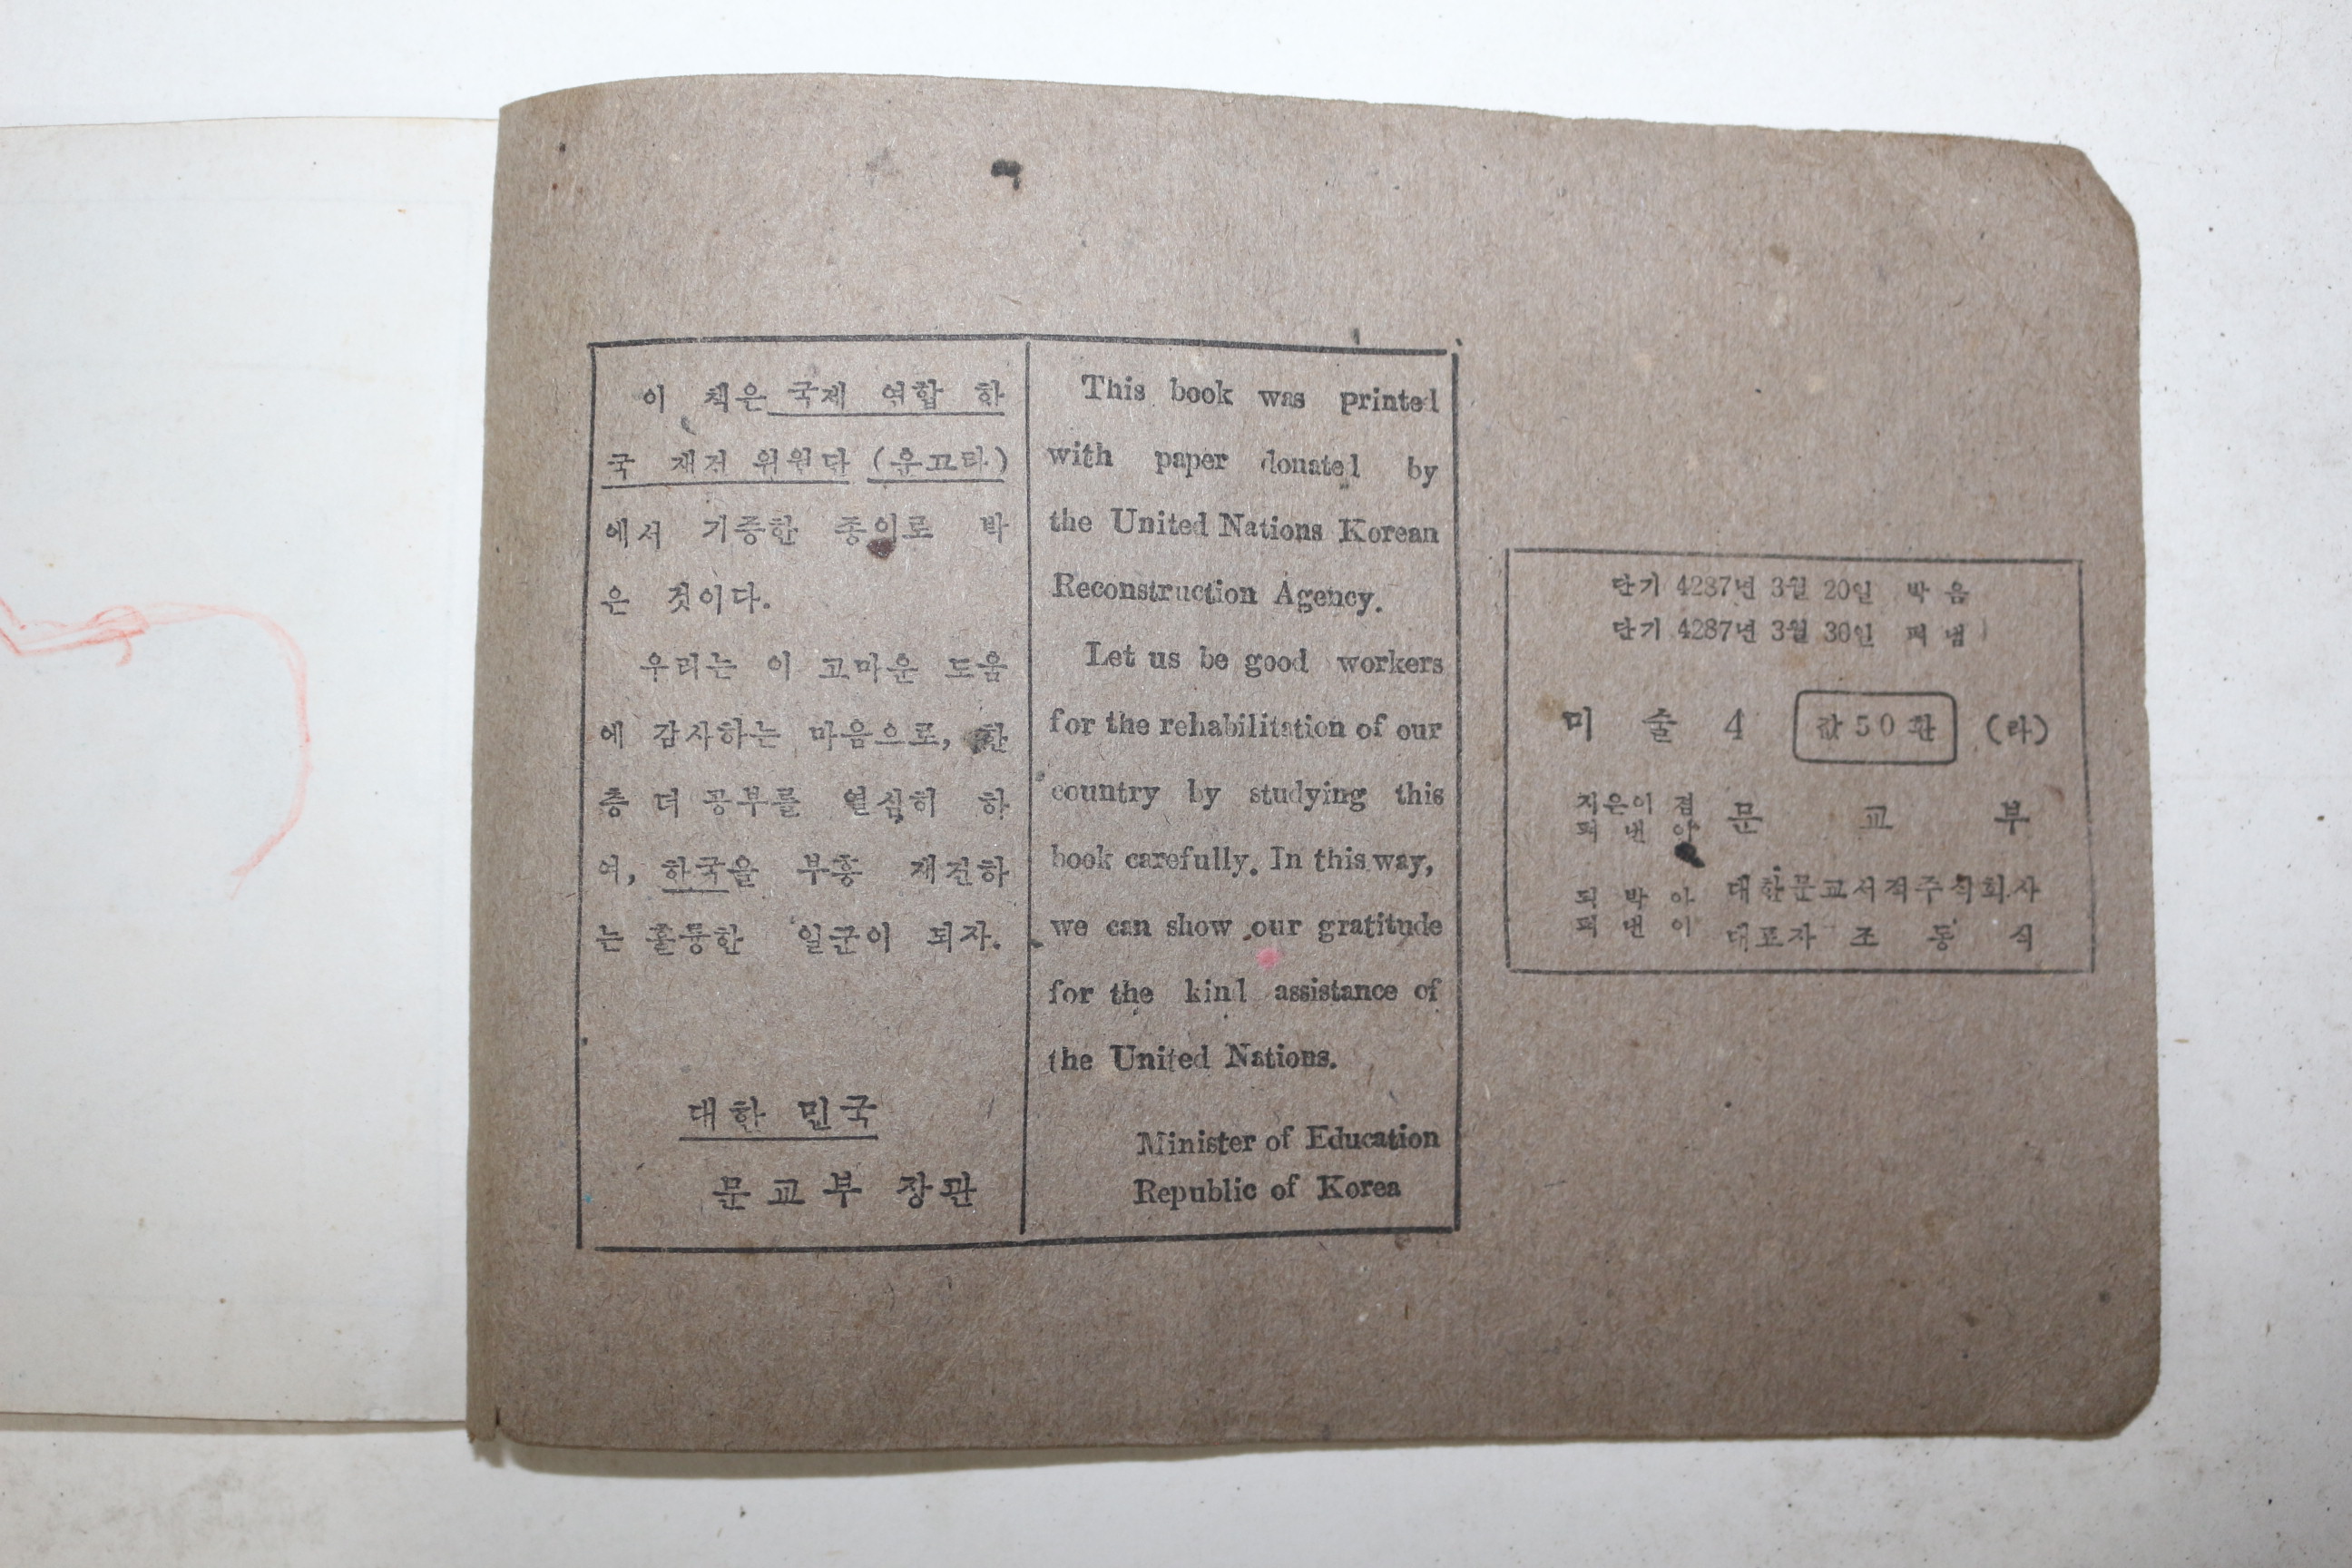 이 책은 국제 연합 한
국 재건 위원단 (운끄라)
에서 기증한 종이로 박
은 것이다.
우리는 이 고마운 도움
에 감사하는 마음으로, 한
층 더 공부를 열심히 하
여, 한국을 부흥 재건하
는 훌륭한 일군이 되자.
대한 민국
문교부 장관
This book was printed
with paper donated by
the United Nations Korean
Reconstruction Agency.
Let us be good workers
for the rehabilitation of our
country by studying this
book carefully. In this way,
we can show our gratitude
for the kind assistance of
the United Nations.
Minister of Education
Republic of Korea
단기 4287년 3월 20일 박음
단기 4287년 3월 30일 펴냄
미 술 4 값 50환 (라)
지은이 겸
펴 낸 이 문 교 부
되 박 아 대한문교서적주식회사
펴 낸 이 대표자 조 동 식